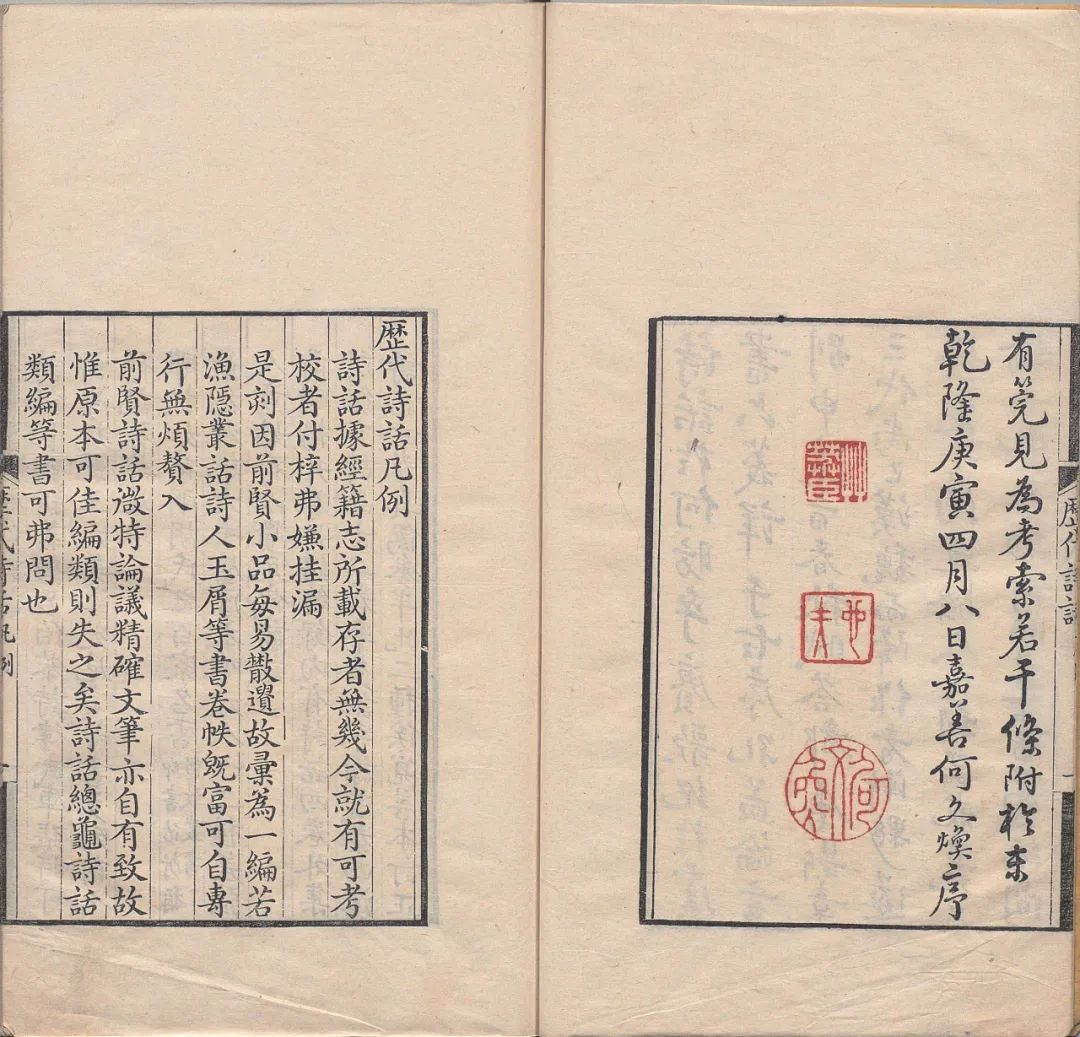 有筦見為考索若干條附於末
乾隆庚寅四月八日嘉善何文煥序
歷代詩話
歷代詩話凡例
詩話據經籍志所載存者無幾今就有可考
校者付梓弗嫌挂漏
是刻因前賢小品每易散遺故彙為一編若
漁隱叢話詩人玉屑等書卷帙既富可自專
行無煩贅入
前賢詩話微特論議精確文筆亦自有致故
惟原本可佳編類則失之矣詩話總龜詩話
類編等書可弗問也
歷代詩話凡例